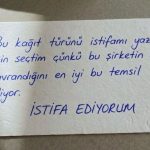 Bu kağıt türünü istifamı yaz
için seçtim çünkü bu şirketin
avrandığını en iyi bu temsil
diyor.
İSTİFA EDİYORUM